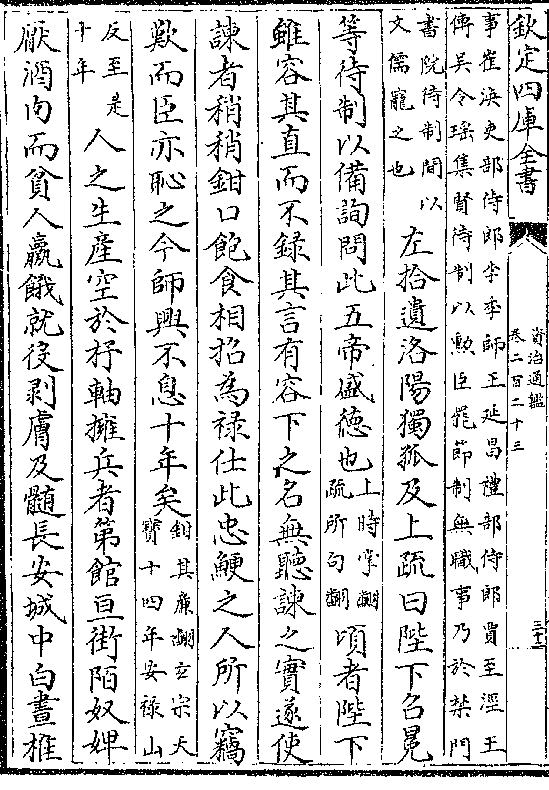 欽定四庫全書
資治通鑑
卷二百二十三
事崔渙吏部侍郎李季師王延昌禮部侍郎賈至涇王
傅吳令瑤集賢待制以勲臣罷節制無職事乃於禁門
書院待制間以
文儒寵之也
左拾遺洛陽獨孤及上疏曰陛下召冕
等待制以備詢問此五帝盛德也
上時掌翻
疏所句翻
頃者陛下
雖容其直而不録其言有容下之名無聽諫之實遂使
諫者稍稍鉗口飽食相招為禄仕此忠鯁之人所以竊
歎而臣亦恥之今師興不息十年矣
鉗其廉翻玄宗天
寶十四年安禄山
反至是
十年
人之生產空於杼軸擁兵者第館亘街陌奴婢
厭酒肉而貧人羸餓就役剥膚及髓長安城中白晝椎